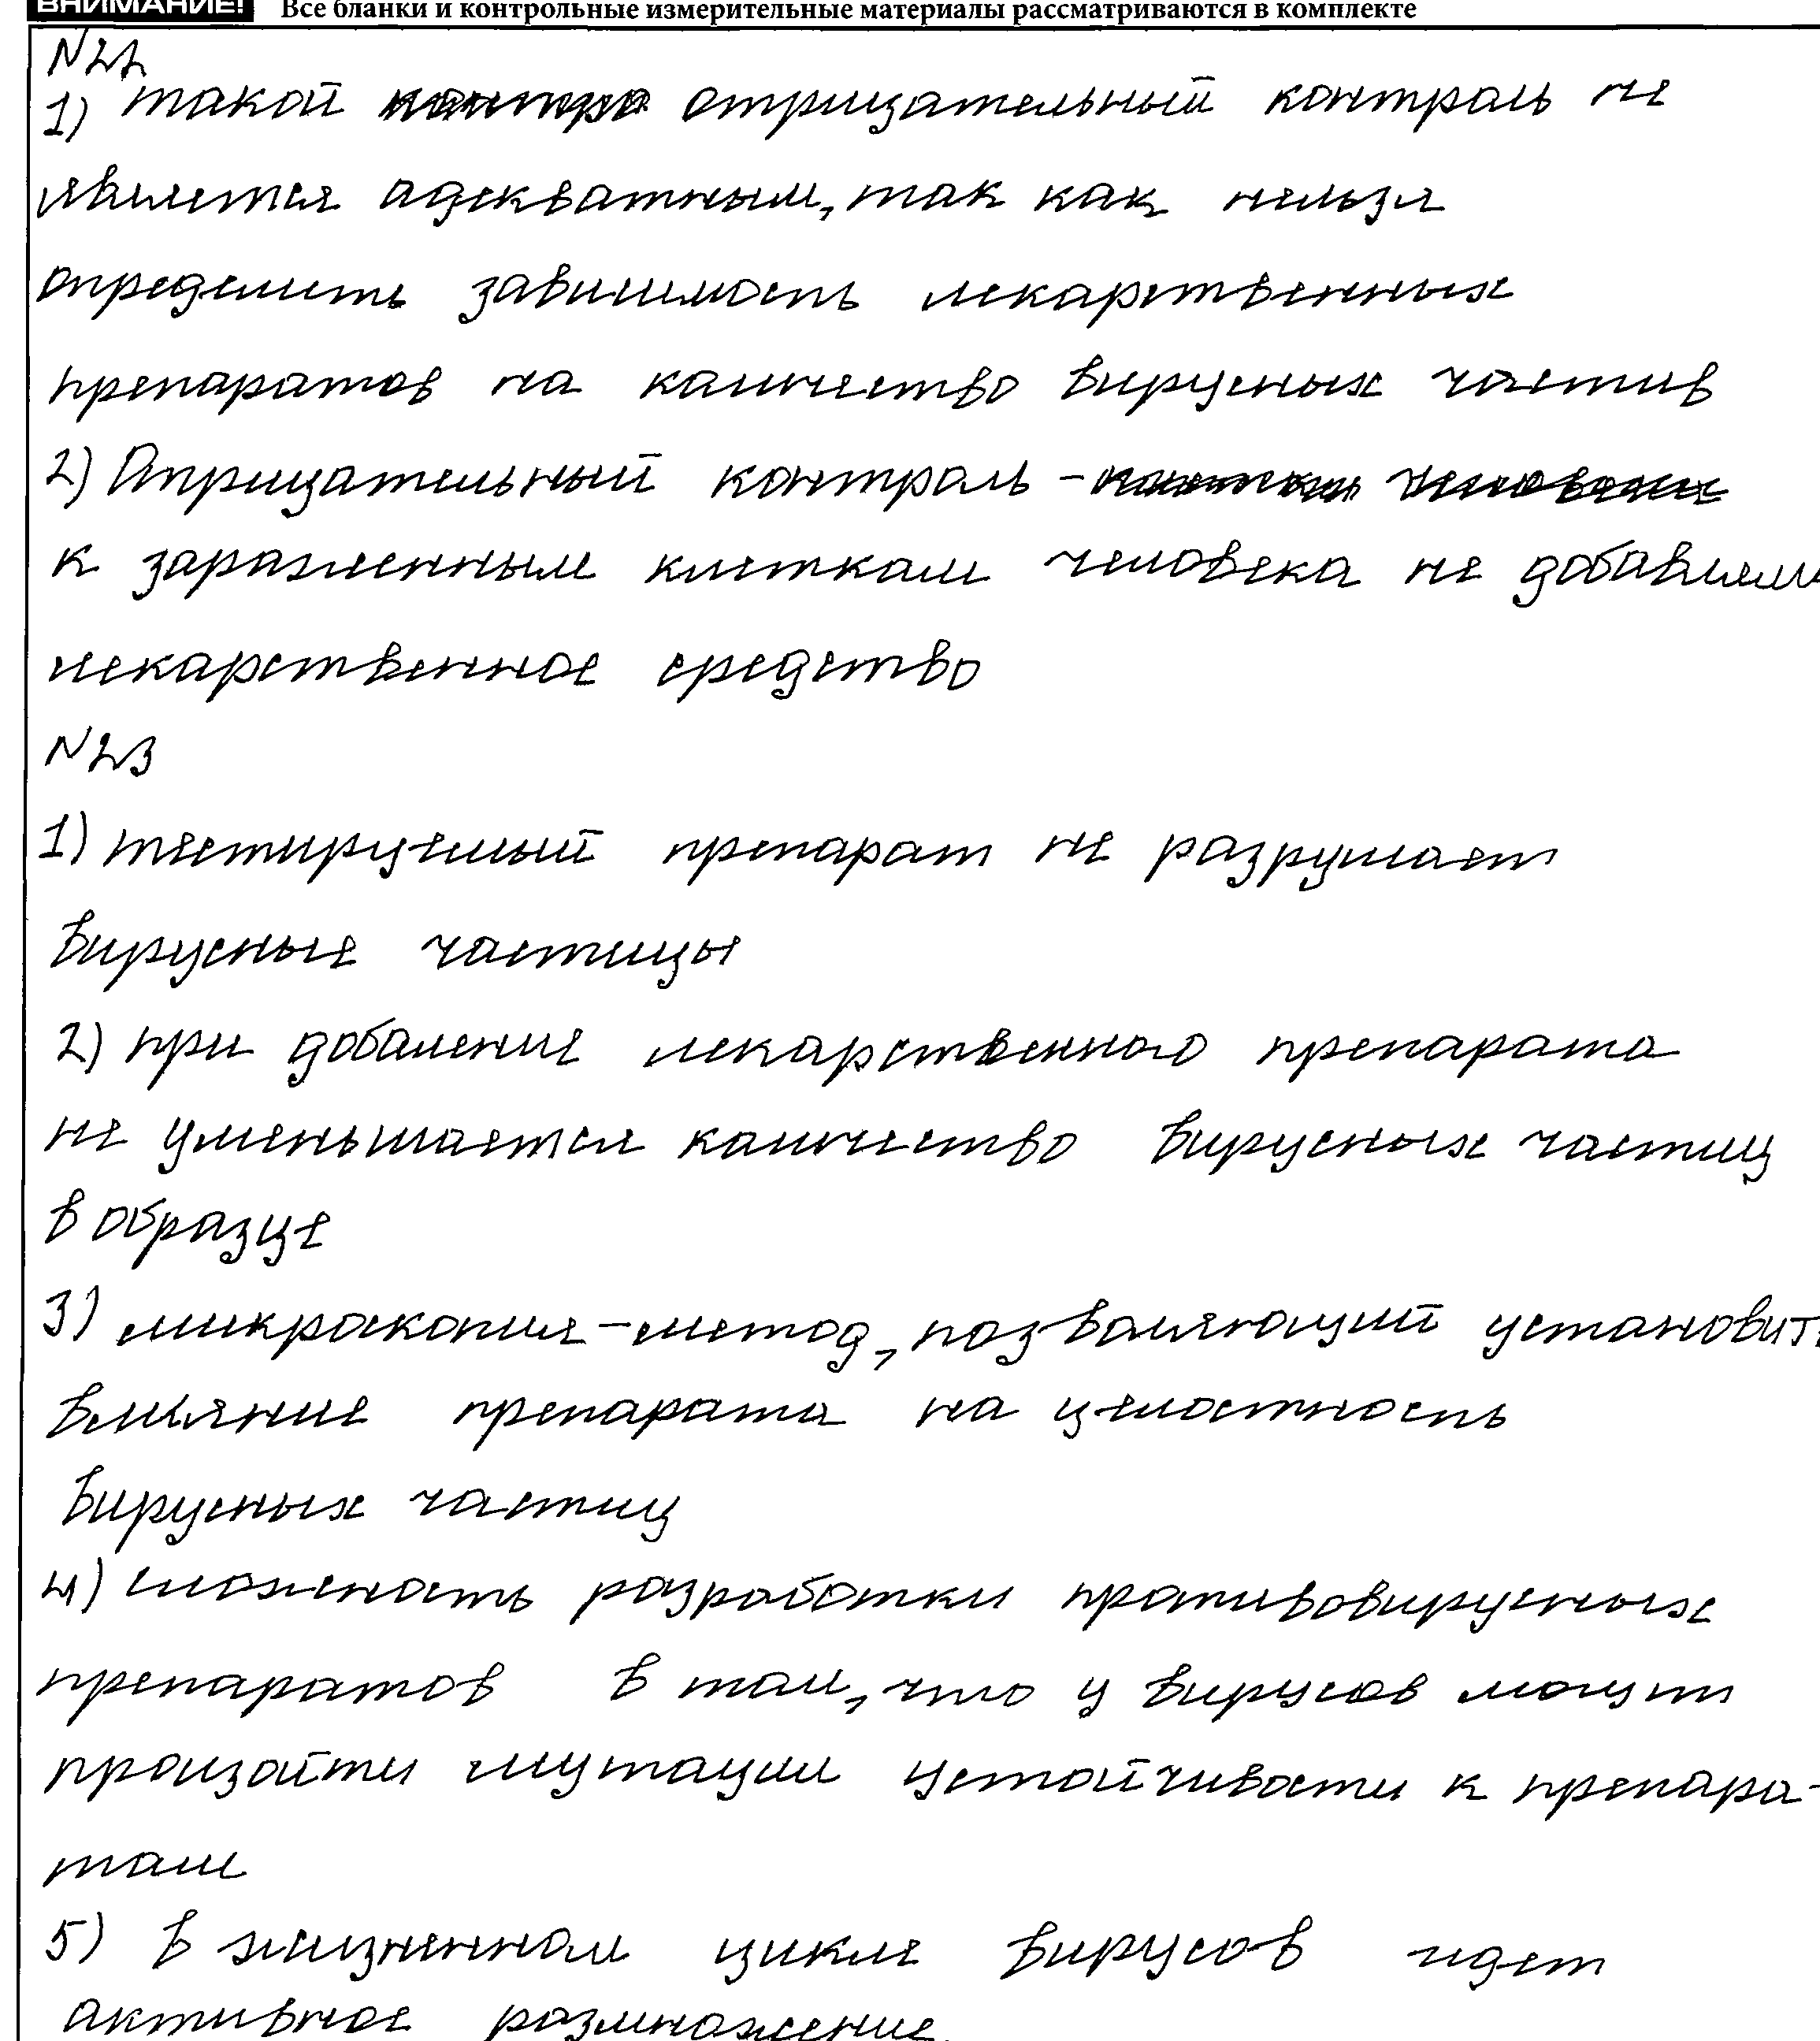 ВНИМАНИЕ! Все бланки и контрольные измерительные материалы рассматриваются в комплекте
N22
1) такой отрицательный контроль не
является адекватным, так как нельзя
определить зависимость лекарственных
препаратов на количество вирусных частив
2) Отрицательный контроль -
к зараженным клеткам человека не добавляли
лекарственное средство
N23
1) тестируемый препарат не разрушает
вирусные частицы
2) при добалении лекарственного препарата
не уменьшается количество вирусных частиц
в образце
3) микроскопия - метод, позволяющий установить
влияние препарата на целостность
вирусных частиц
4) сложность разработки противовирусных
препаратов в том, что у вирусов могут
произойти мутации устойчивости к препара-
там
5) в жизненном цикле вирусов идет
активное размножение.